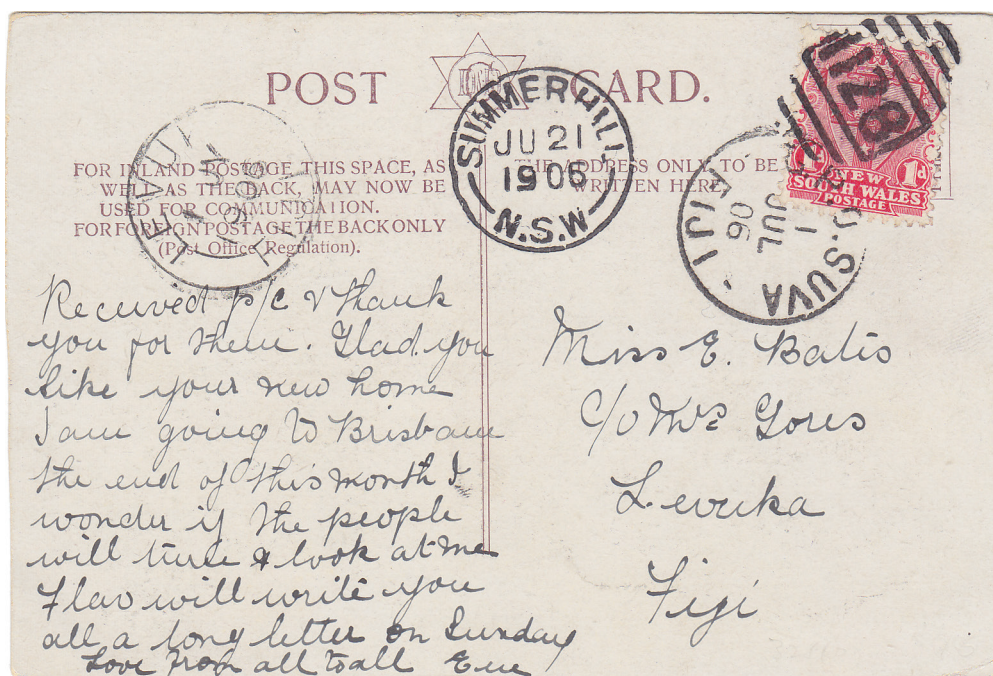 POST CARD.
FOR INLAND POSTAGE THIS SPACE, AS
WELL AS THE BACK, MAY NOW BE
USED FOR COMMUNICATION.
FOR FOREIGN POSTAGE THE BACK ONLY
(Post Office Regulation).
THE ADDRESS ONLY TO BE
WRITTEN HERE
SUMMER HILL
JU 21
1906
N.S.W
128
1d
NEW
SOUTH WALES
POSTAGE
1d
G.P.O. SUVA
1
JUL
06
FIJI
LEVUKA
FIJI
Received p/c & thank
you for them. Glad you
like your new home
I am going to Brisbane
the end of this month I
wonder if the people
will turn & look at me
Flav will write you
all a long letter on Sunday
Love from all to all
Miss E. Batis
c/o Mrs Gores
Levuka
Figi